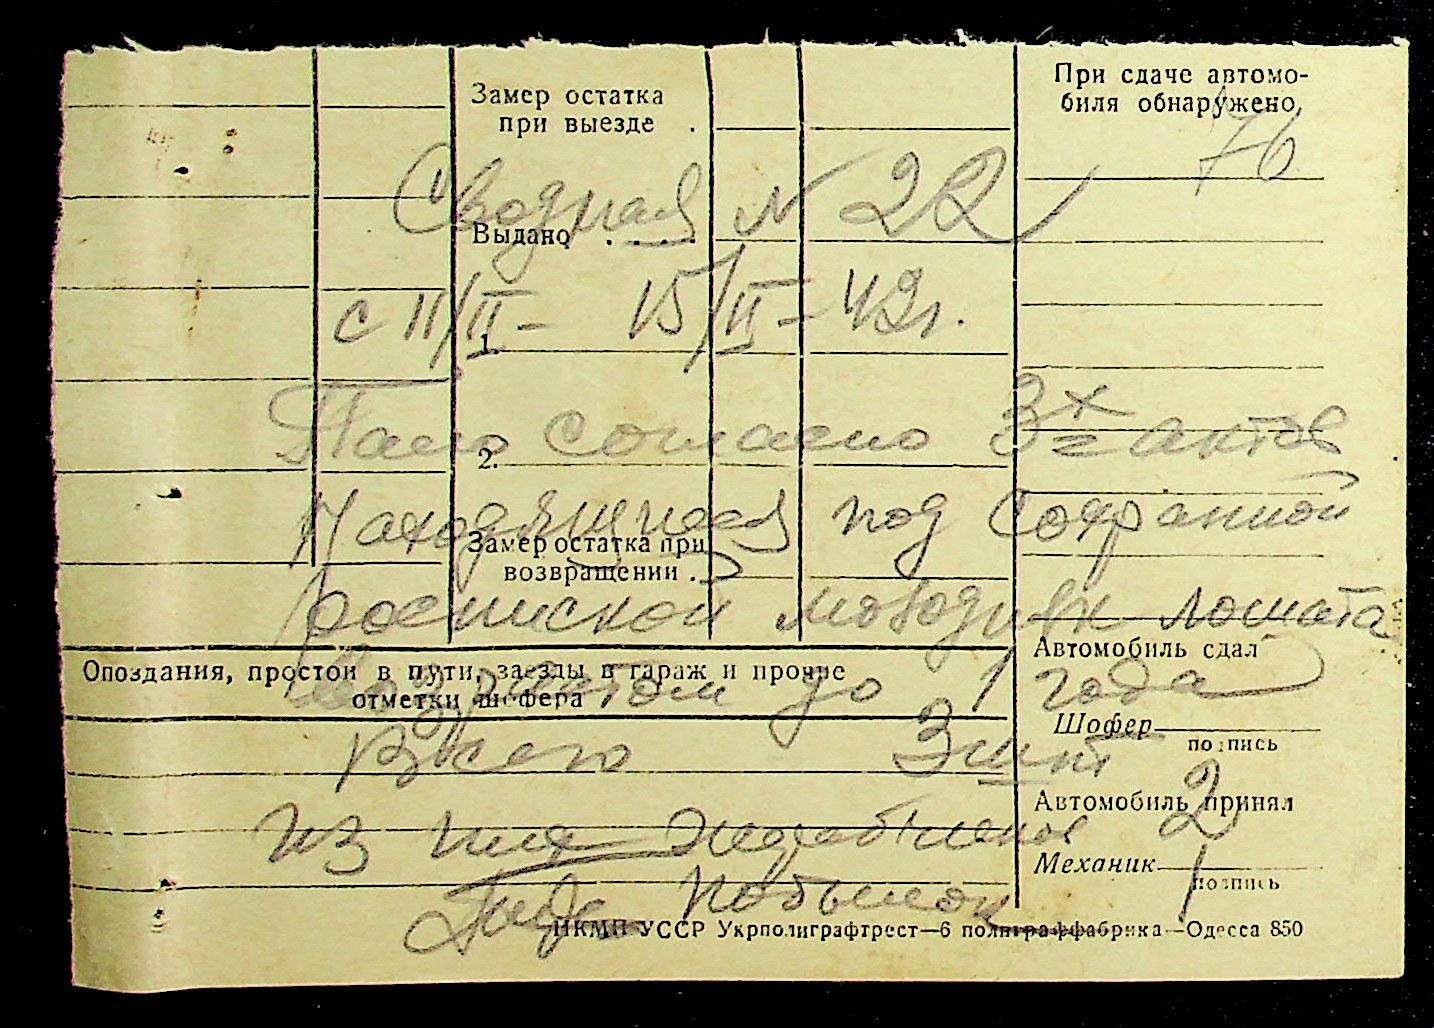 При сдаче автомо-
биля обнаружено
76
Замер остатка
при выезде .
Сводная № 22
Выдано . . . .
с 11/II - 15/II - 43г.
1.
Пало согласно 3х актов
2.
находящиеся под сохранной
Замер остатка при
возвращении . .
роспиской молодняк лошат
Автомобиль сдал
Опоздания, простои в пути, заезды в гараж и прочие
отметки шофера
возрастом до 1 года
Шофер
подпись
Всего 3 шт
Автомобиль принял
из них 2
Механик
подпись
1
НКМП УССР Укрполиграфтрест—6 полиграффабрика—Одесса 850